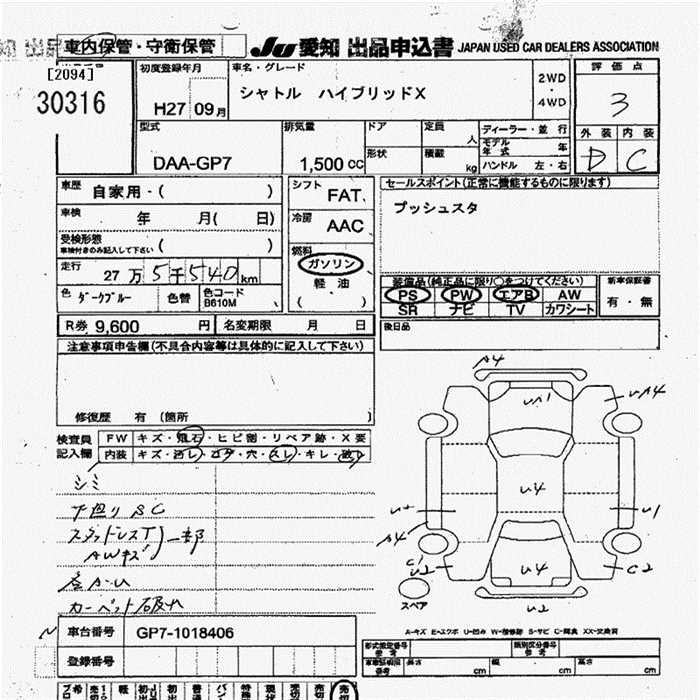 車内保管・守衛保管 JU 愛知 出品申込書 JAPAN USED CAR DEALERS ASSOCIATION
[2094]
30316
初度登録年月
H27 09月
車名・グレード
シャトル ハイブリッドX
2WD
・
4WD
評価点
3
外装 内装
D C
型式
DAA-GP7
排気量
1,500 cc
ドア
形状
定員 人
積載 kg
ディーラー・並行
モデル年式 年
ハンドル 左・右
車歴 自家用・( )
車検 年 月( 日)
受検形態
車検付きのみ記入して下さい ( )
走行 27万5千540km
色 ダークブルー 色替 色コード B610M
シフト FAT
冷房 AAC
燃料
ガソリン
軽油
( )
セールスポイント(正常に機能するものに限ります)
プッシュスタ
装備品(純正品に限り○をつけてください)
PS PW エアB AW
SR ナビ TV カワシート
新車保証書
有・無
後日品
R券 9,600 円 名変期限 月 日
注意事項申告欄(不具合内容等は具体的に記入して下さい)
修復歴 有 (箇所 )
検査員記入欄
FW キズ・飛石・ヒビ割・リペア跡・X要
内装 キズ・汚レ・コゲ・穴・スレ・キレ・破レ
シミ
下廻りSC
スタッドレスT
AWキズ
一部
各A・U
カーペット破れ
A4
UA1
UA4
U4
U1
A4
U2
U4
C2
U2
スペア
A-キズ E-エクボ U-凹み W-補修跡 S-サビ C-腐食 XX-交換済
車台番号 GP7-1018406
登録番号
型式指定番号
備考
類別区分番号
備考
車検証記載
備考
長さ cm 幅 cm 高さ cm